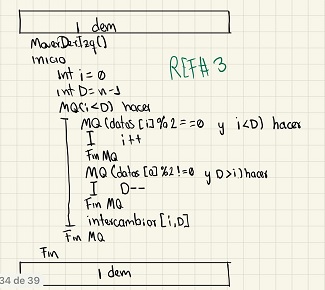 1 dem
MoverDerIzq()
Inicio
REF# 3
int i = 0
int D = n-1
MQ(i<D) hacer
MQ (datos [i]%2==0 y i<D) hacer
i++
Fin MQ
MQ (datos [D]%2!=0 y D>i) hacer
D--
Fin MQ
intercambior [i,D]
Fin MQ
Fin
34 de 39
1 dem